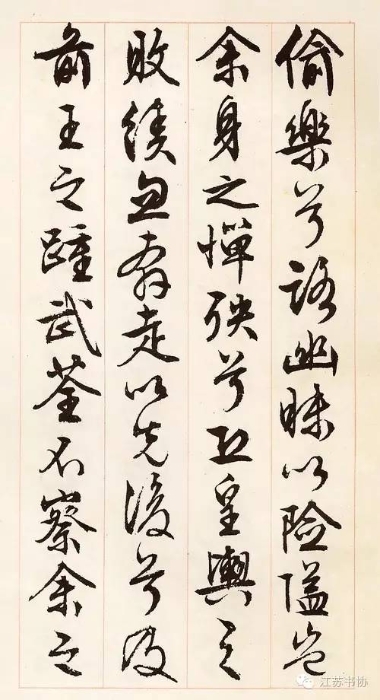 偷樂兮路幽昧以險隘豈
余身之憚殃兮恐皇輿之
敗績忽奔走以先後兮及
前王之踵武荃不察余之
江苏书协